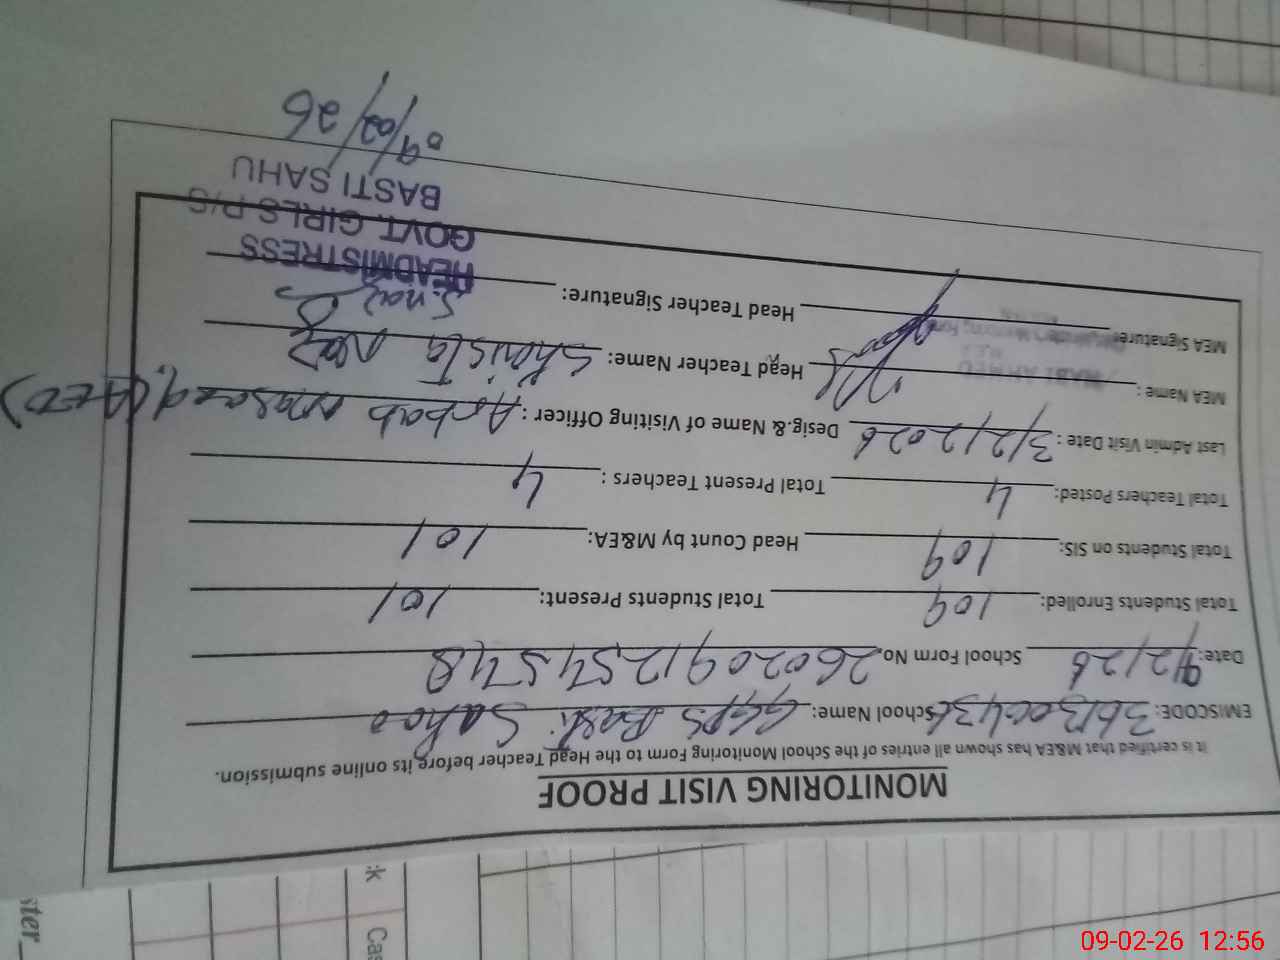 MONITORING VISIT PROOF
it is certified that M&EA has shown all entries of the School Monitoring Form to the Head Teacher before its online submission.
EMISCODE: 36130043 School Name: GGPS Basti Sahoo
Date: 9/2/26 School Form No. 26020912545748
Total Students Enrolled: 109 Total Students Present: 101
Total Students on SIS: 109 Head Count by M&EA: 101
Total Teachers Posted: 4 Total Present Teachers : 4
Last Admin Visit Date : 3/2/2026 Desig.& Name of Visiting Officer : Arbab (AEO)
MEA Name : Head Teacher Name: Shaista Naz
MEA Signature: Head Teacher Signature: S.naz
HEADMISTRESS
GOVT. GIRLS P/S
BASTI SAHU
09/02/26
ster_
*k Cas
09-02-26 12:56